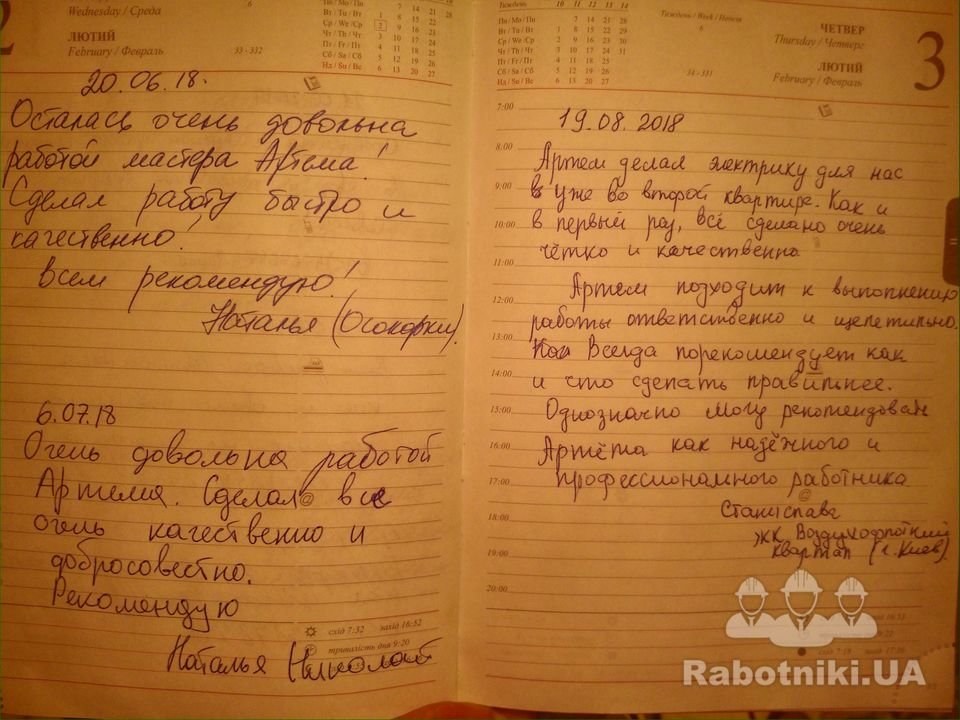 Wednesday / Среда
ЛЮТИЙ
February / Февраль
33 - 332
Пн / Mo / Пн 7 14 21 28
Вт / Tu / Вт 1 8 15 22
Ср / We / Ср 2 9 16 23
Чт / Th / Чт 3 10 17 24
Пт / Fr / Пт 4 11 18 25
Сб / Sa / Сб 5 12 19 26
Нд / Su / Вс 6 13 20 27
20.06.18.
Осталась очень довольна
работой мастера Артема!
Сделал работу быстро и
качественно!
Всем рекомендую!
Наталья (Осокорки).
6.07.18
Очень довольна работой
Артемия. Сделал все
очень качественно и
добросовестно.
Рекомендую
Наталья
схід 7:32 захід 16:52
тривалість дня 9:20
Тиждень 10 11 12 13 14
Пн / Mo / Пн 7 14 21 28
Вт / Tu / Вт 1 8 15 22
Ср / We / Ср 2 9 16 23 30
Чт / Th / Чт 3 10 17 24 31
Пт / Fr / Пт 4 11 18 25
Сб / Sa / Сб 5 12 19 26
Нд / Su / Вс 6 13 20 27
Тиждень / Week / Неделя
6
34 - 331
ЧЕТВЕР
Thursday / Четверг
ЛЮТИЙ
February / Февраль
3
7:00
19.08.2018
8:00
Артем делал электрику для нас
9:00
в уже во второй квартире. Как и
10:00
в первый раз, всё сделано очень
чётко и качественно
11:00
Артем подходит к выполнению
12:00
работы ответственно и щепетильно.
13:00
Всегда порекомендует как
14:00
и что сделать правильнее.
15:00
Однозначно могу рекомендовать
16:00
Артёма как надёжного и
17:00
профессионального работника
Станислава
18:00
ЖК Воздухофлотский
квартал (г. Киев)
19:00
20:00
Rabotniki.UA